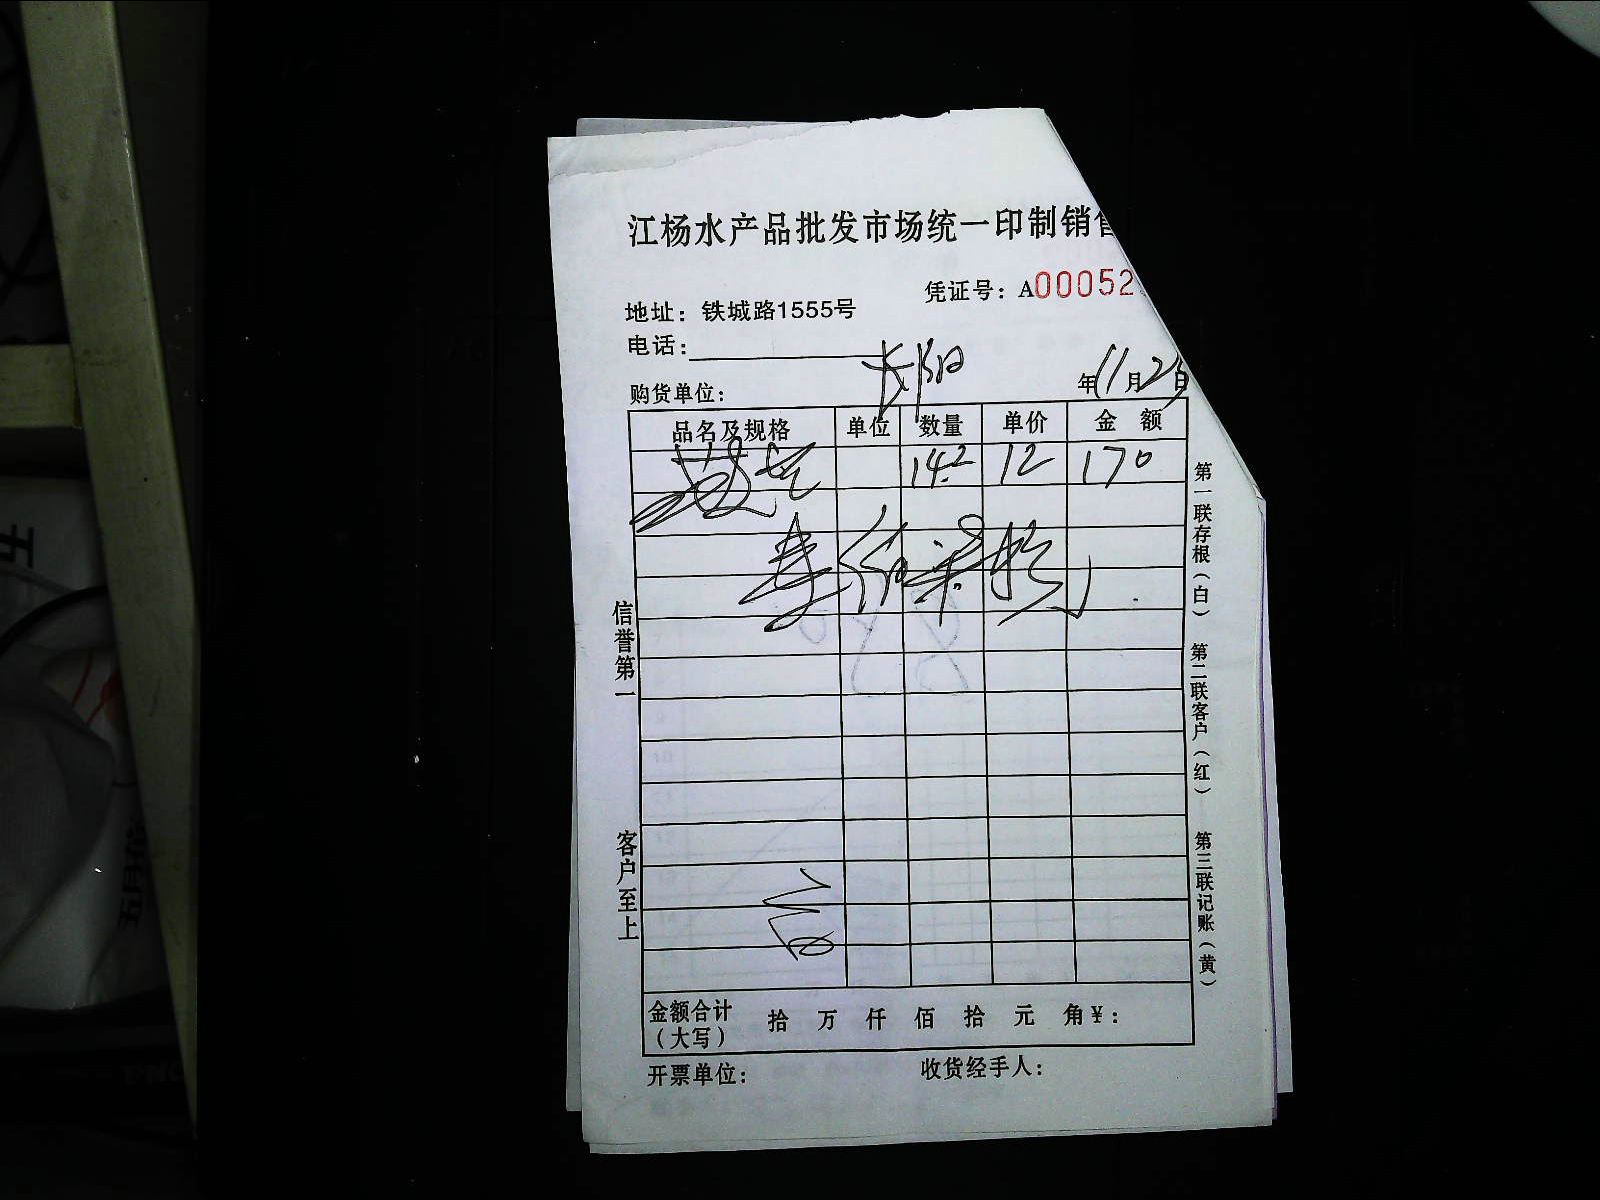 江杨水产品批发市场统一印制销售
凭证号：A00052
地址：铁城路1555号
电话：
长阳
购货单位： 年11月25日
品名及规格 单位 数量 单价 金额
14.2 12 170
信誉第一
客户至上
第一联存根（白）
第二联客户（红）
第三联记账（黄）
金额合计（大写） 拾 万 仟 佰 拾 元 角¥：
开票单位： 收货经手人：
五